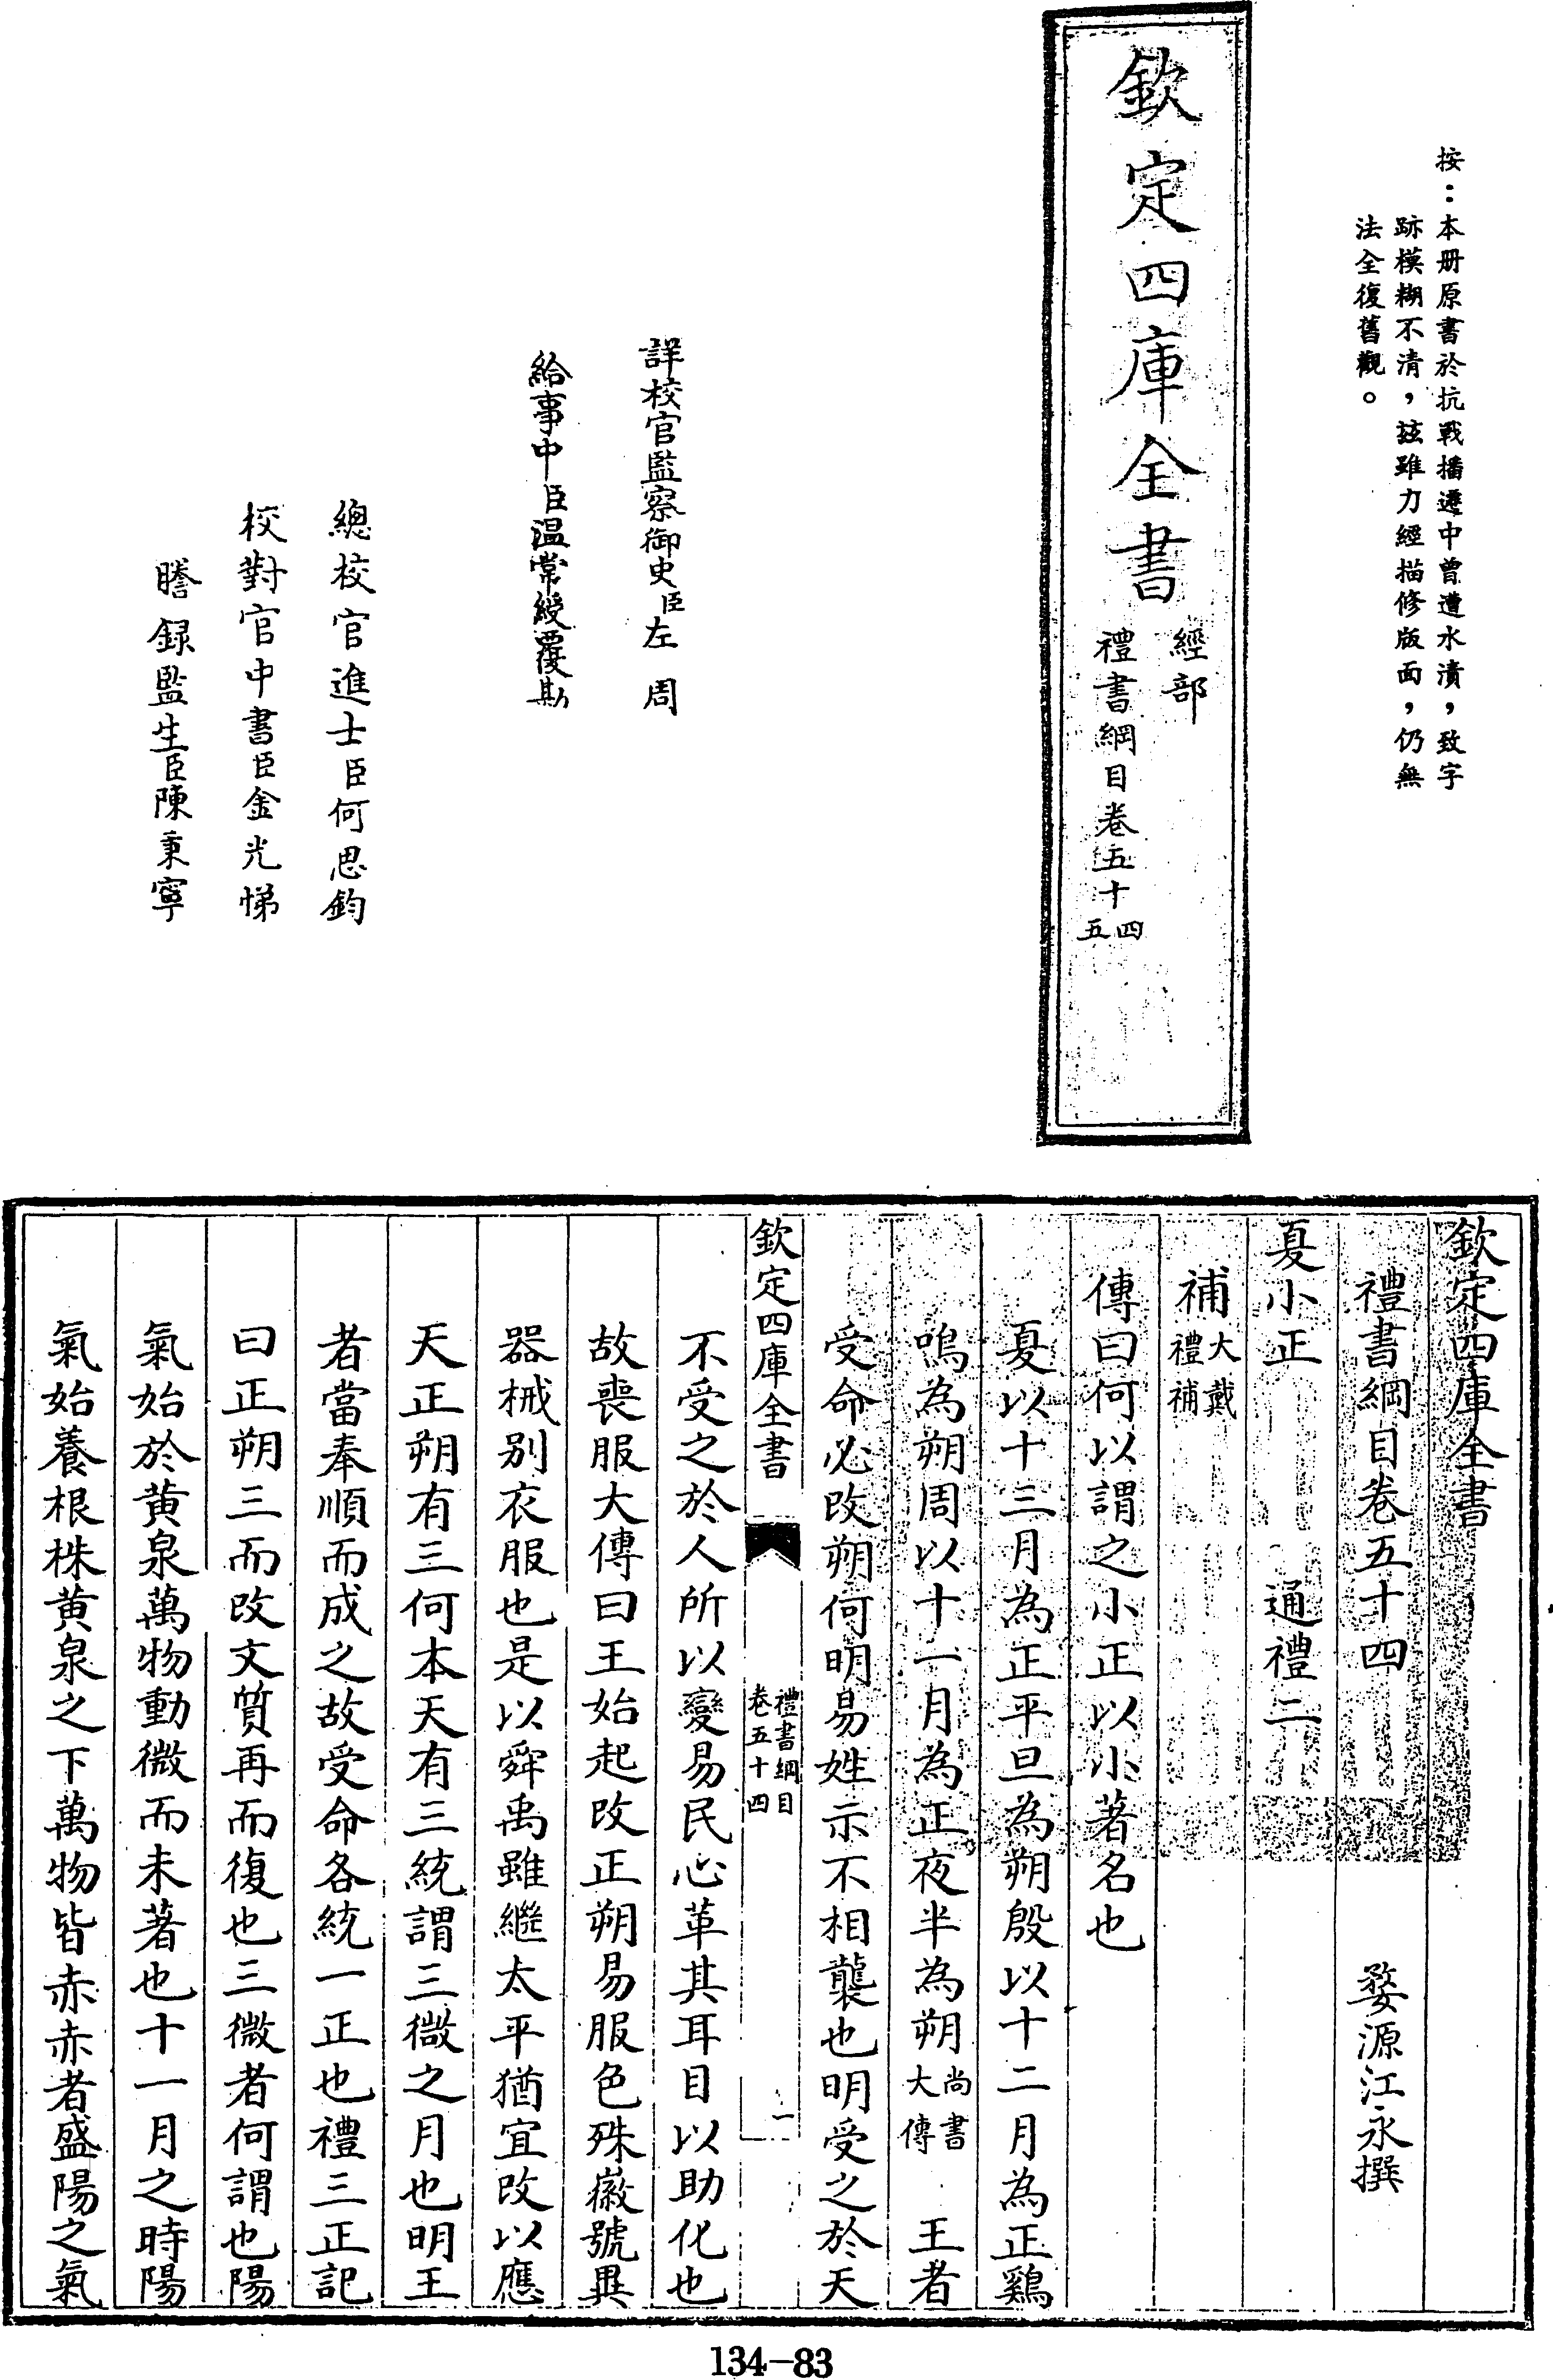 按：本册原書於抗戰播遷中曾遭水漬，致字
跡模糊不清，茲雖力經描修版面，仍無
法全復舊觀。
欽定四庫全書
經部
禮書綱目卷五十四
五
詳校官監察御史臣左周
給事中臣温常綬覆勘
總校官進士臣何思鈞
校對官中書臣金光悌
謄録監生臣陳秉寧
欽定四庫全書
禮書綱目卷五十四
婺源江永撰
夏小正 通禮二
補大戴禮補
傳曰何以謂之小正以小著名也
夏以十三月為正平旦為朔殷以十二月為正鷄
鳴為朔周以十一月為正夜半為朔尚書大傳 王者
受命必改朔何明易姓示不相襲也明受之於天
欽定四庫全書
禮書綱目
卷五十四
一
不受之於人所以變易民心革其耳目以助化也
故喪服大傳曰王始起改正朔易服色殊徽號異
器械别衣服也是以舜禹雖繼太平猶宜改以應
天正朔有三何本天有三統謂三微之月也明王
者當奉順而成之故受命各統一正也禮三正記
曰正朔三而改文質再而復也三微者何謂也陽
氣始於黄泉萬物動微而未著也十一月之時陽
氣始養根株黄泉之下萬物皆赤赤者盛陽之氣
134-83